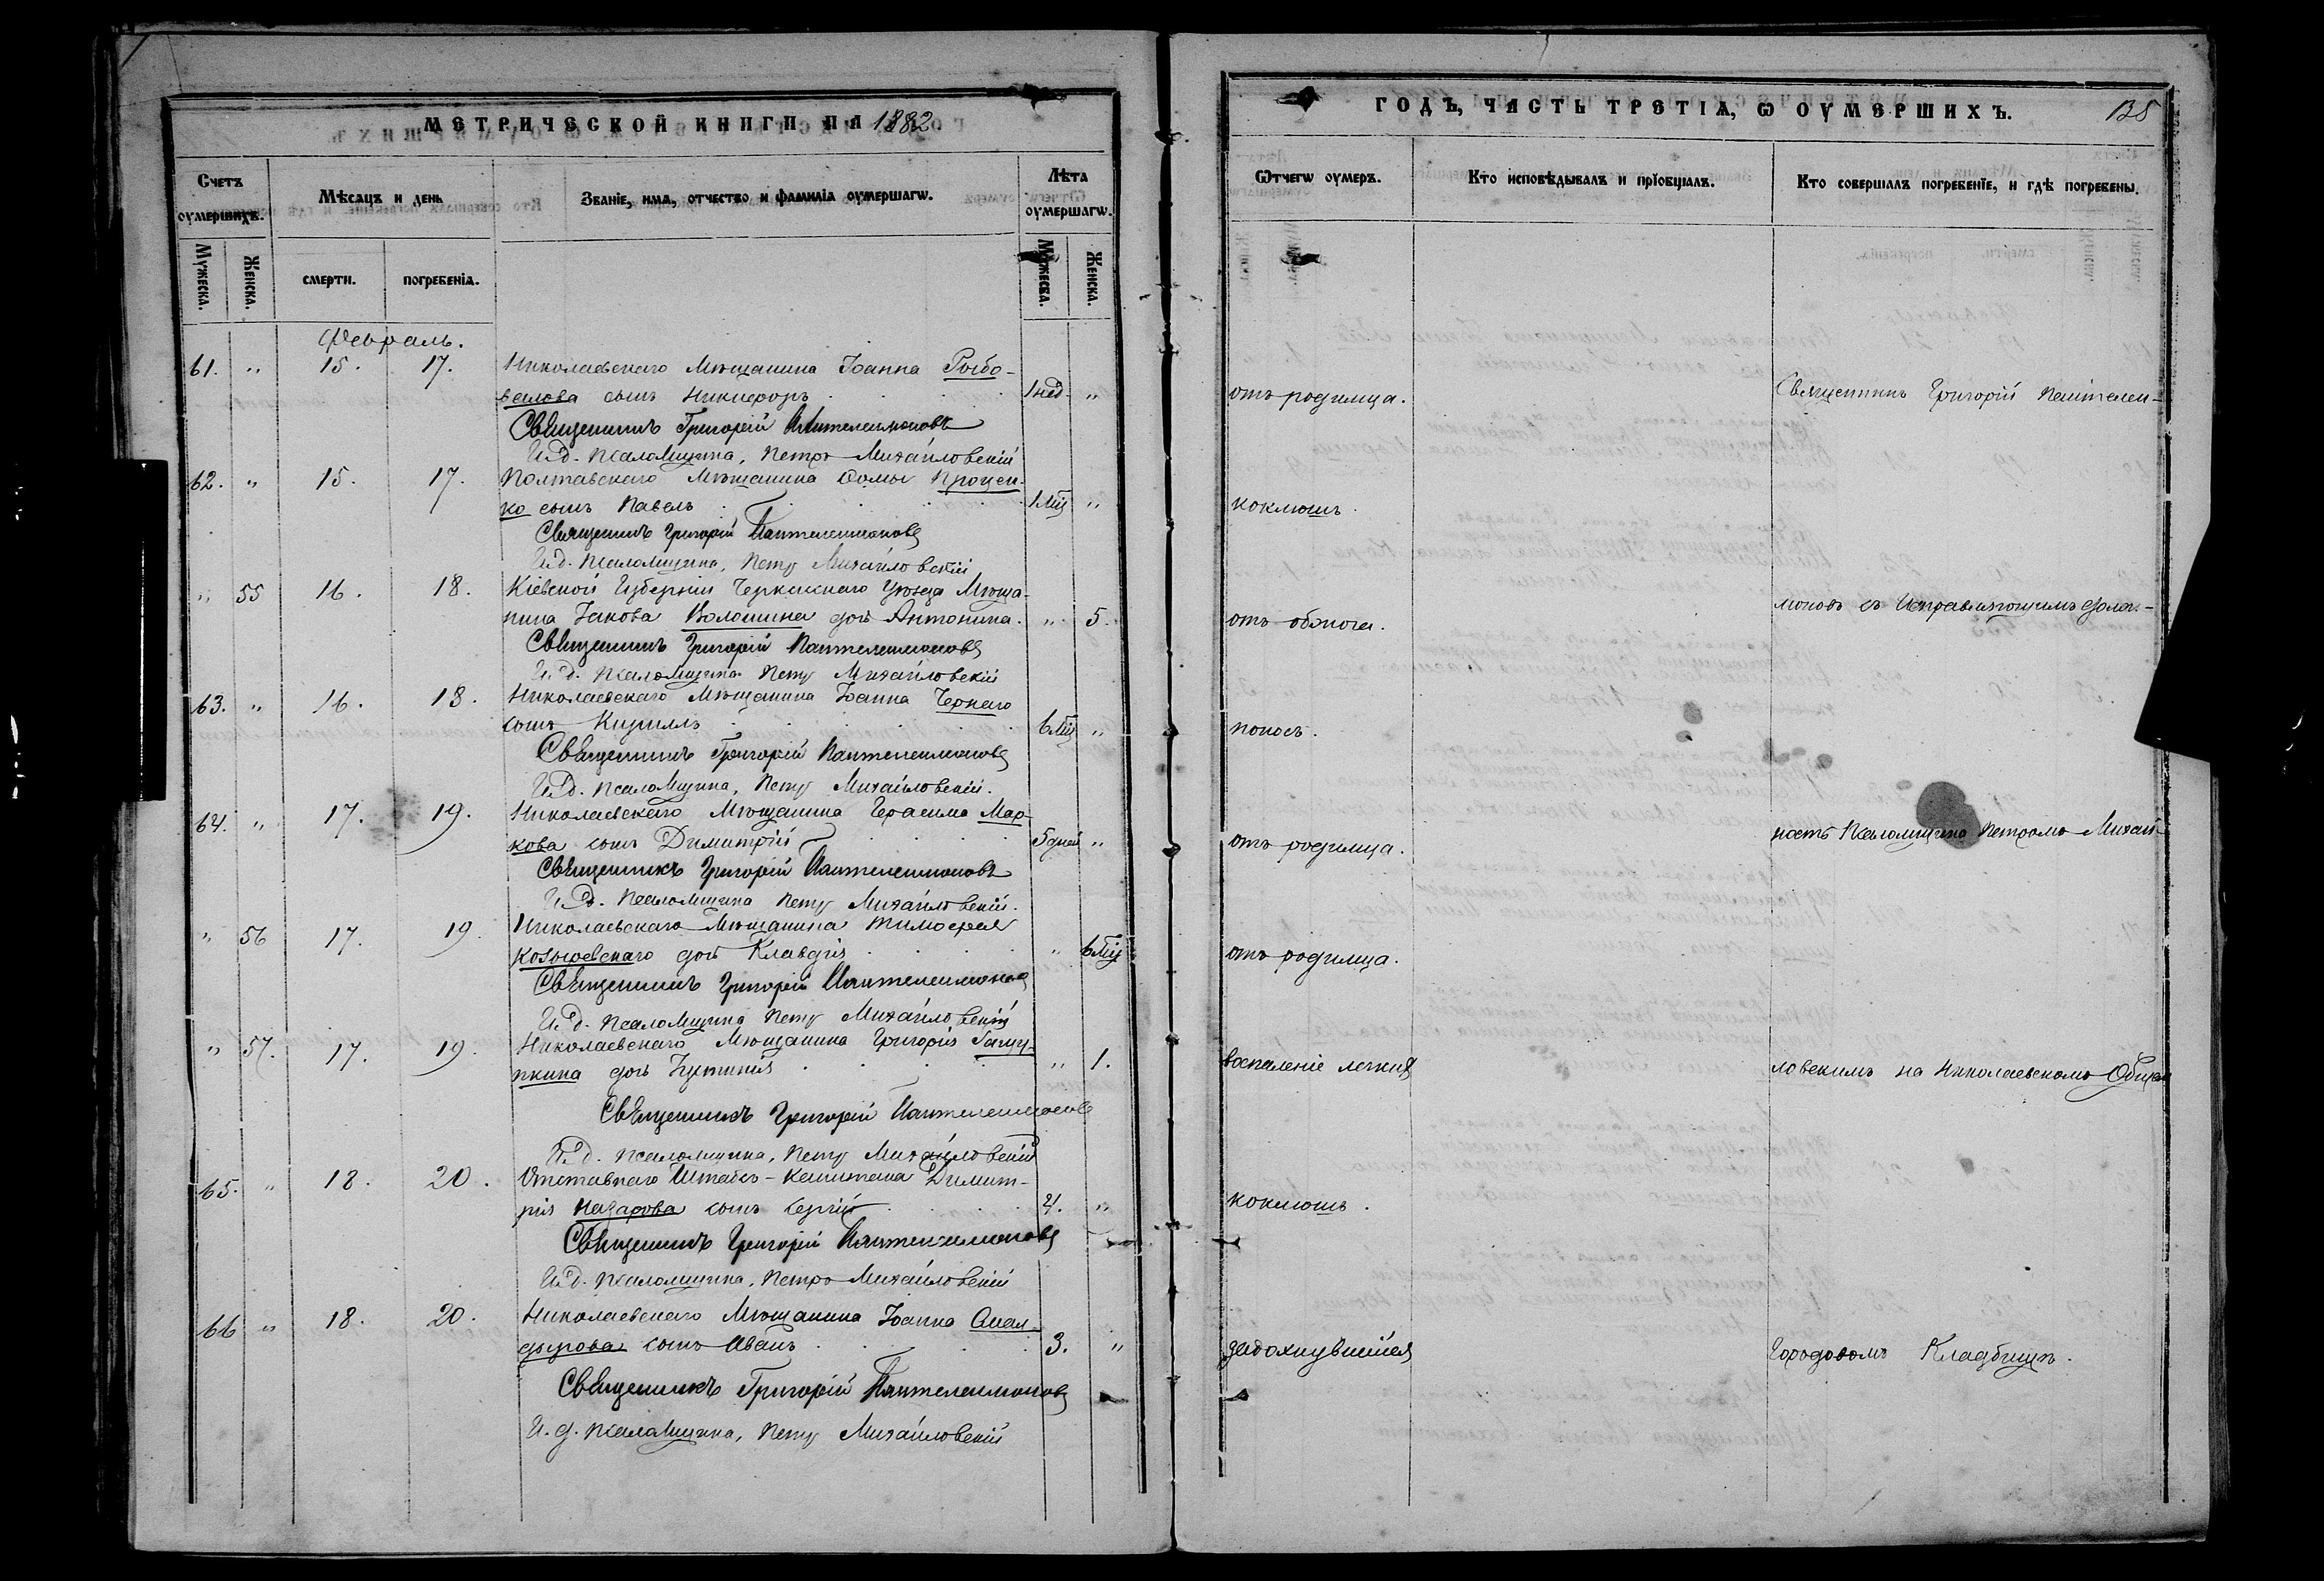 МЕТРИЧЕСКОЙ КНИГИ НА 1882.
Счетъ оумершихъ.
Мѣсацъ и день
Званіе, има, отчество и фамиліа оумершагѡ.
Лѣта оумершагѡ.
Мужеска.
Женска.
смерти.
погребеніа.
Мужеска.
Женска.
Февраль.
61. " 15. 17. Николаевскаго Мѣщанина Іоанна Рыбо-
валова сынъ Никифоръ 1 нед. "
Священникъ Григорій Пантелеимоновъ
И.д. псаломщика, Петръ Михайловскій
62. " 15. 17. Полтавскаго Мѣщанина Ѳомы Процен-
ко сынъ Павелъ 1 мц "
Священникъ Григорій Пантелеимоновъ
И.д. псаломщика, Петръ Михайловскій
" 55 16. 18. Кіевской Губерніи Черкасскаго Уѣзда Мѣща-
нина Іакова Волошина дочь Антонина. " 5.
Священникъ Григорій Пантелеимоновъ
И.д. псаломщика Петръ Михайловскій
63. " 16. 18. Николаевскаго Мѣщанина Іоанна Чернаго
сынъ Кириллъ 6 мц "
Священникъ Григорій Пантелеимоновъ
И.д. псаломщика, Петръ Михайловскій.
64. " 17. 19. Николаевскаго Мѣщанина Герасима Мар-
кова сынъ Димитрій 5 дней "
Священникъ Григорій Пантелеимоновъ
И.д. псаломщика Петръ Михайловскій.
" 56 17. 19. Николаевскаго Мѣщанина Тимофея
Козыревскаго дочь Клавдія " 6 мц
Священникъ Григорій Пантелеимоновъ
И.д. псаломщика Петръ Михайловскій
" 57. 17. 19. Николаевскаго Мѣщанина Григорія
дочь " 1.
Священникъ Григорій Пантелеимоновъ
И.д. псаломщика, Петръ Михайловскій
65. " 18. 20. Отставнаго Штабсъ-Капитана Димит-
рія Назарова сынъ Сергій 4. "
Священникъ Григорій Пантелеимоновъ
И.д. псаломщика, Петръ Михайловскій
66 " 18. 20. Николаевскаго Мѣщанина Іоанна
сынъ Иванъ 3. "
Священникъ Григорій Пантелеимоновъ
И.д. псаломщика, Петръ Михайловскій
ГОДЪ, ЧАСТЬ ТРЕТІА, Ѡ ОУМЕРШИХЪ. 135
Ѿчегѡ оумеръ.
Кто исповѣдывалъ и пріобщалъ.
Кто совершалъ погребеніе, и гдѣ погребены.
отъ родимца. Священникъ Григорій Пантелеи-
коклюшъ.
моновъ съ Исправляющимъ долж-
отъ обжога.
поносъ.
ность Псаломщика Петромъ Михай-
отъ родимца.
отъ родимца.
воспаленіе легкихъ ловскимъ на Николаевскомъ Общемъ
коклюшъ.
задохнувшійся Городовомъ Кладбищѣ.